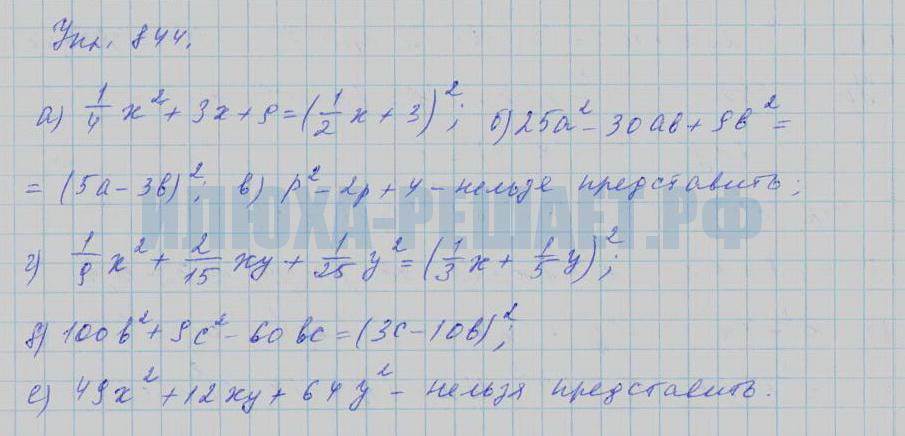 Упр. 844.
а) 1/4 x² + 3x + 9 = (1/2 x + 3)²; б) 25a² - 30ab + 9b² =
= (5a - 3b)²; в) p² - 2p + 4 - нельзя представить;
ИЛЮХА-РЕШАЕТ.РФ
г) 1/9 x² + 2/15 xy + 1/25 y² = (1/3 x + 1/5 y)²;
д) 100b² + 9c² - 60bc = (3c - 10b)²;
е) 49x² + 12xy + 64y² - нельзя представить.